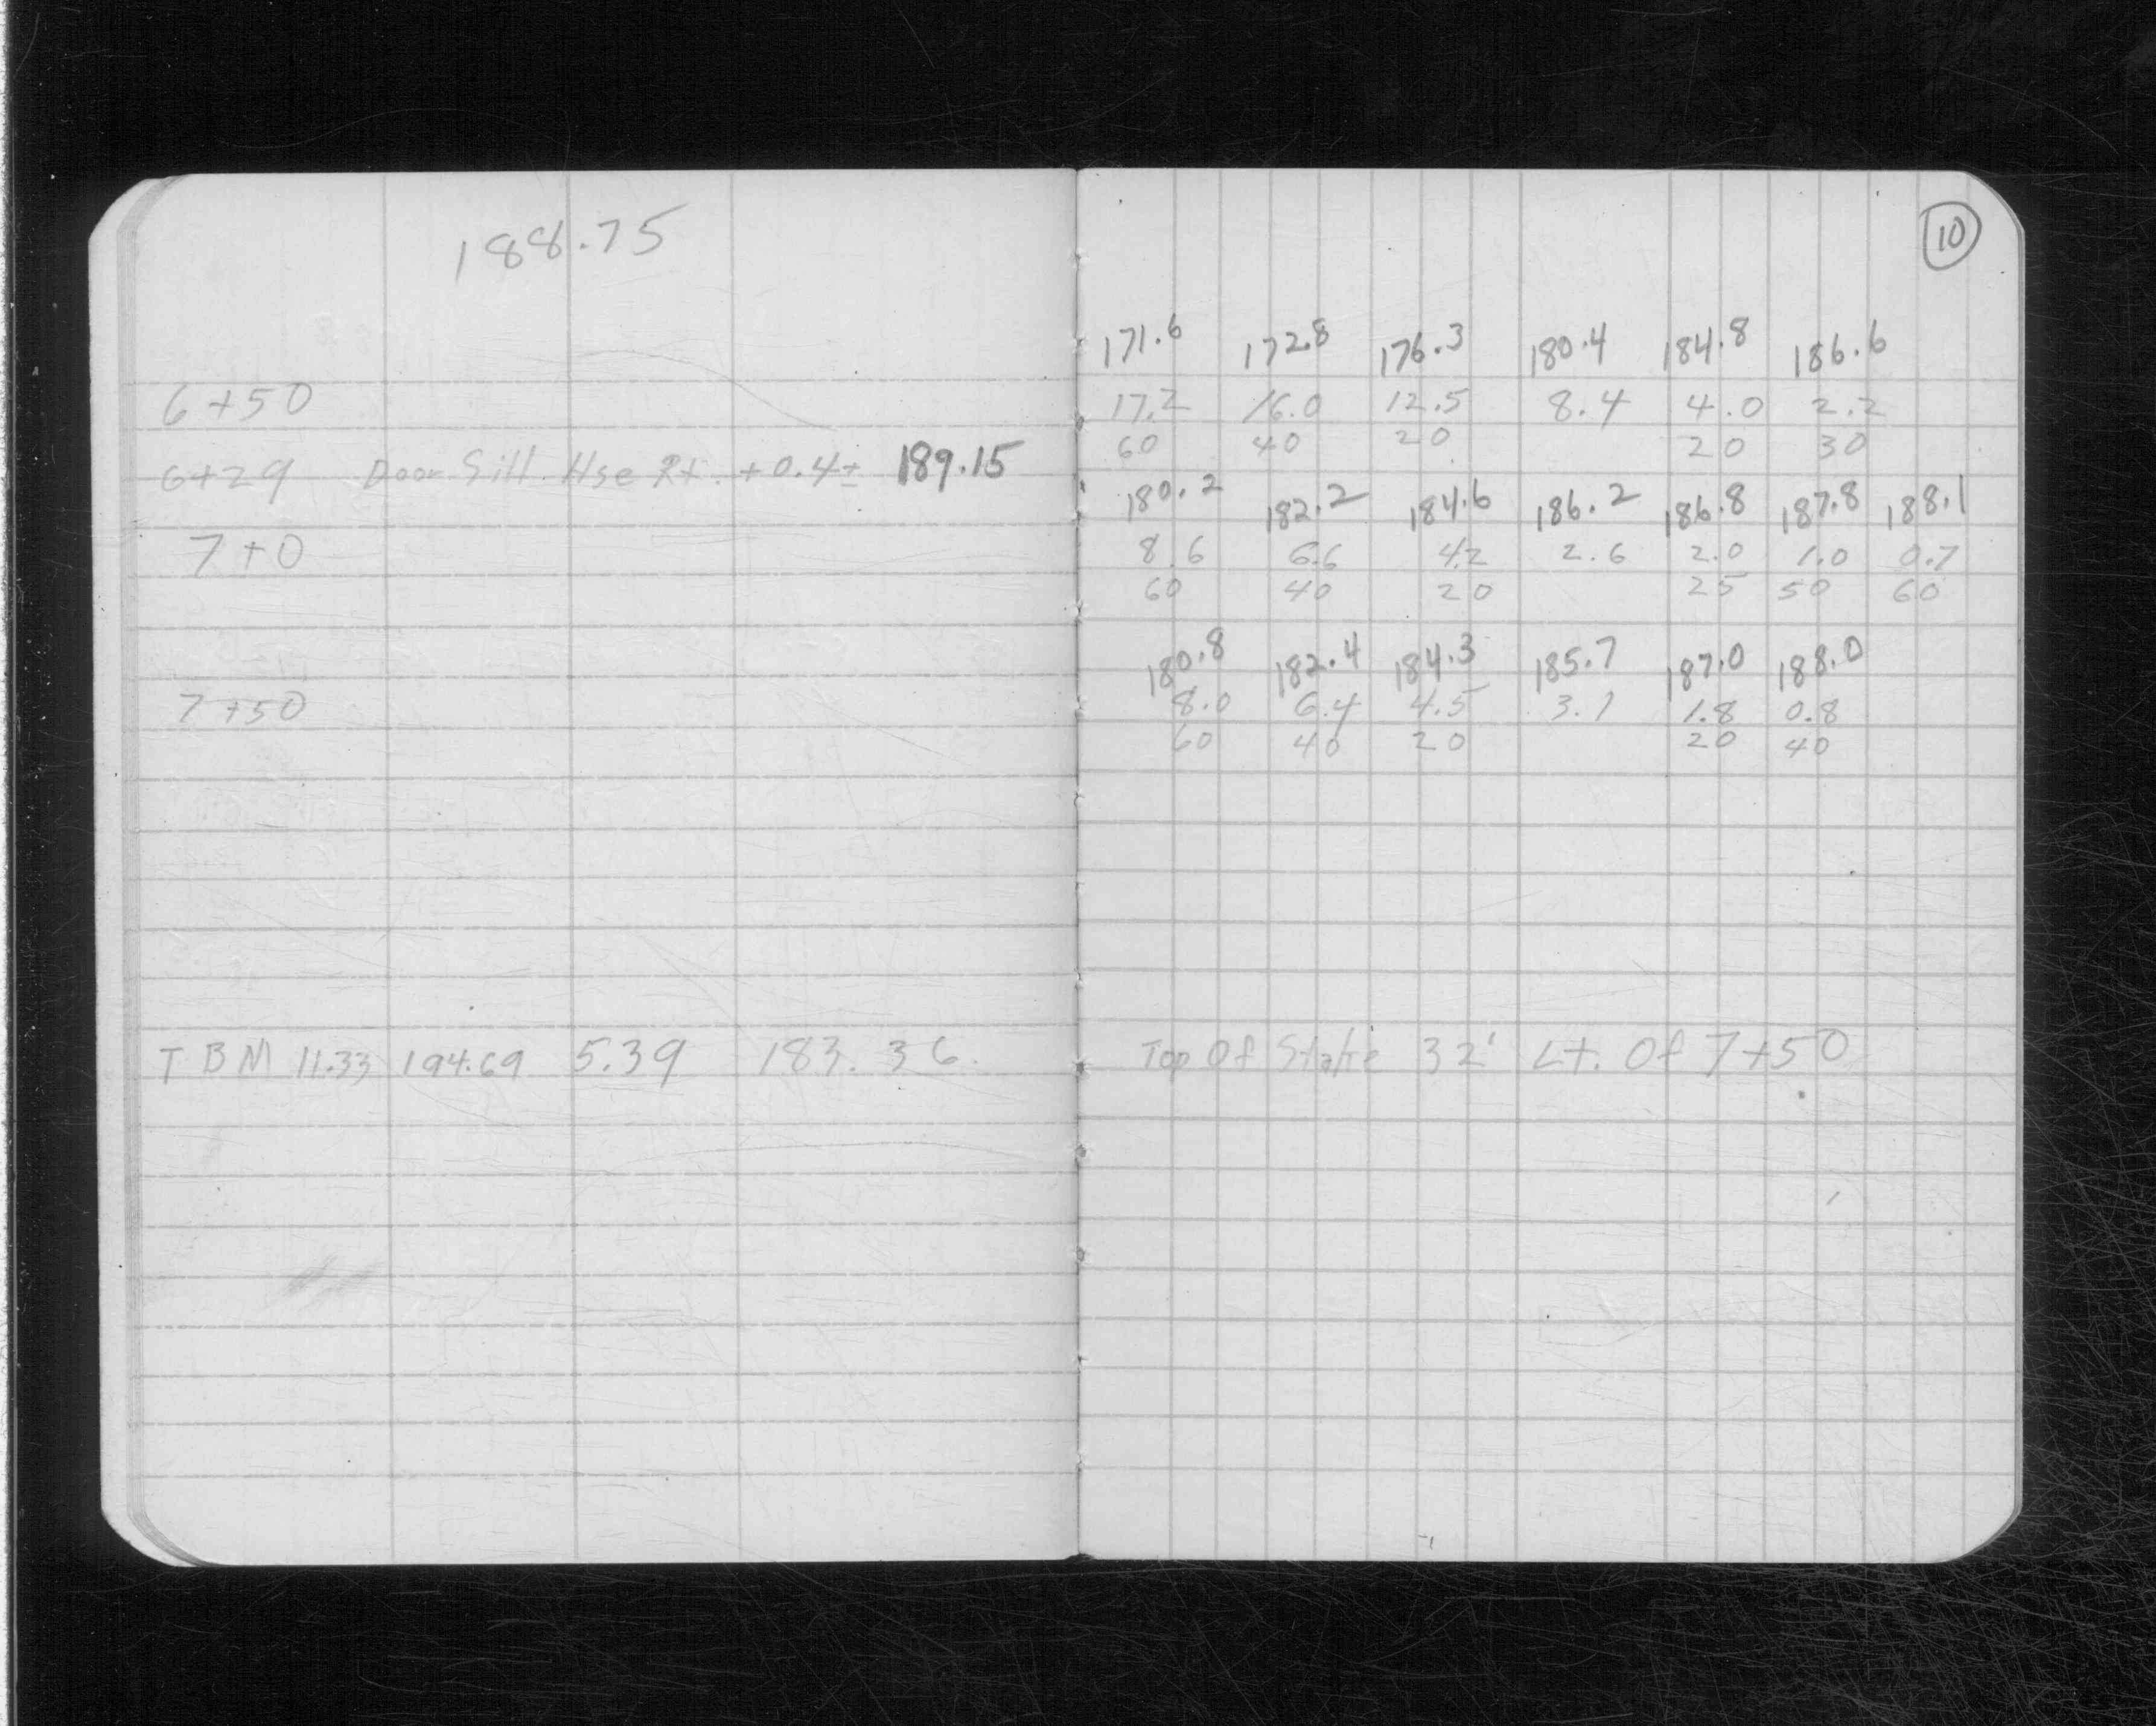 188.75
6+50
6+29 Door Sill Hse Rt. +0.4± 189.15
7+0
7+50
TBM 11.33 194.69 5.39 183.36
10
171.6 172.8 176.3 180.4 184.8 186.6
17.2 16.0 12.5 8.4 4.0 2.2
60 40 20 20 30
180.2 182.2 184.6 186.2 186.8 187.8 188.1
8.6 6.6 4.2 2.6 2.0 1.0 0.7
60 40 20 25 50 60
180.8 182.4 184.3 185.7 187.0 188.0
8.0 6.4 4.5 3.1 1.8 0.8
60 40 20 20 40
Top Of Stake 32' Lt. Of 7+50